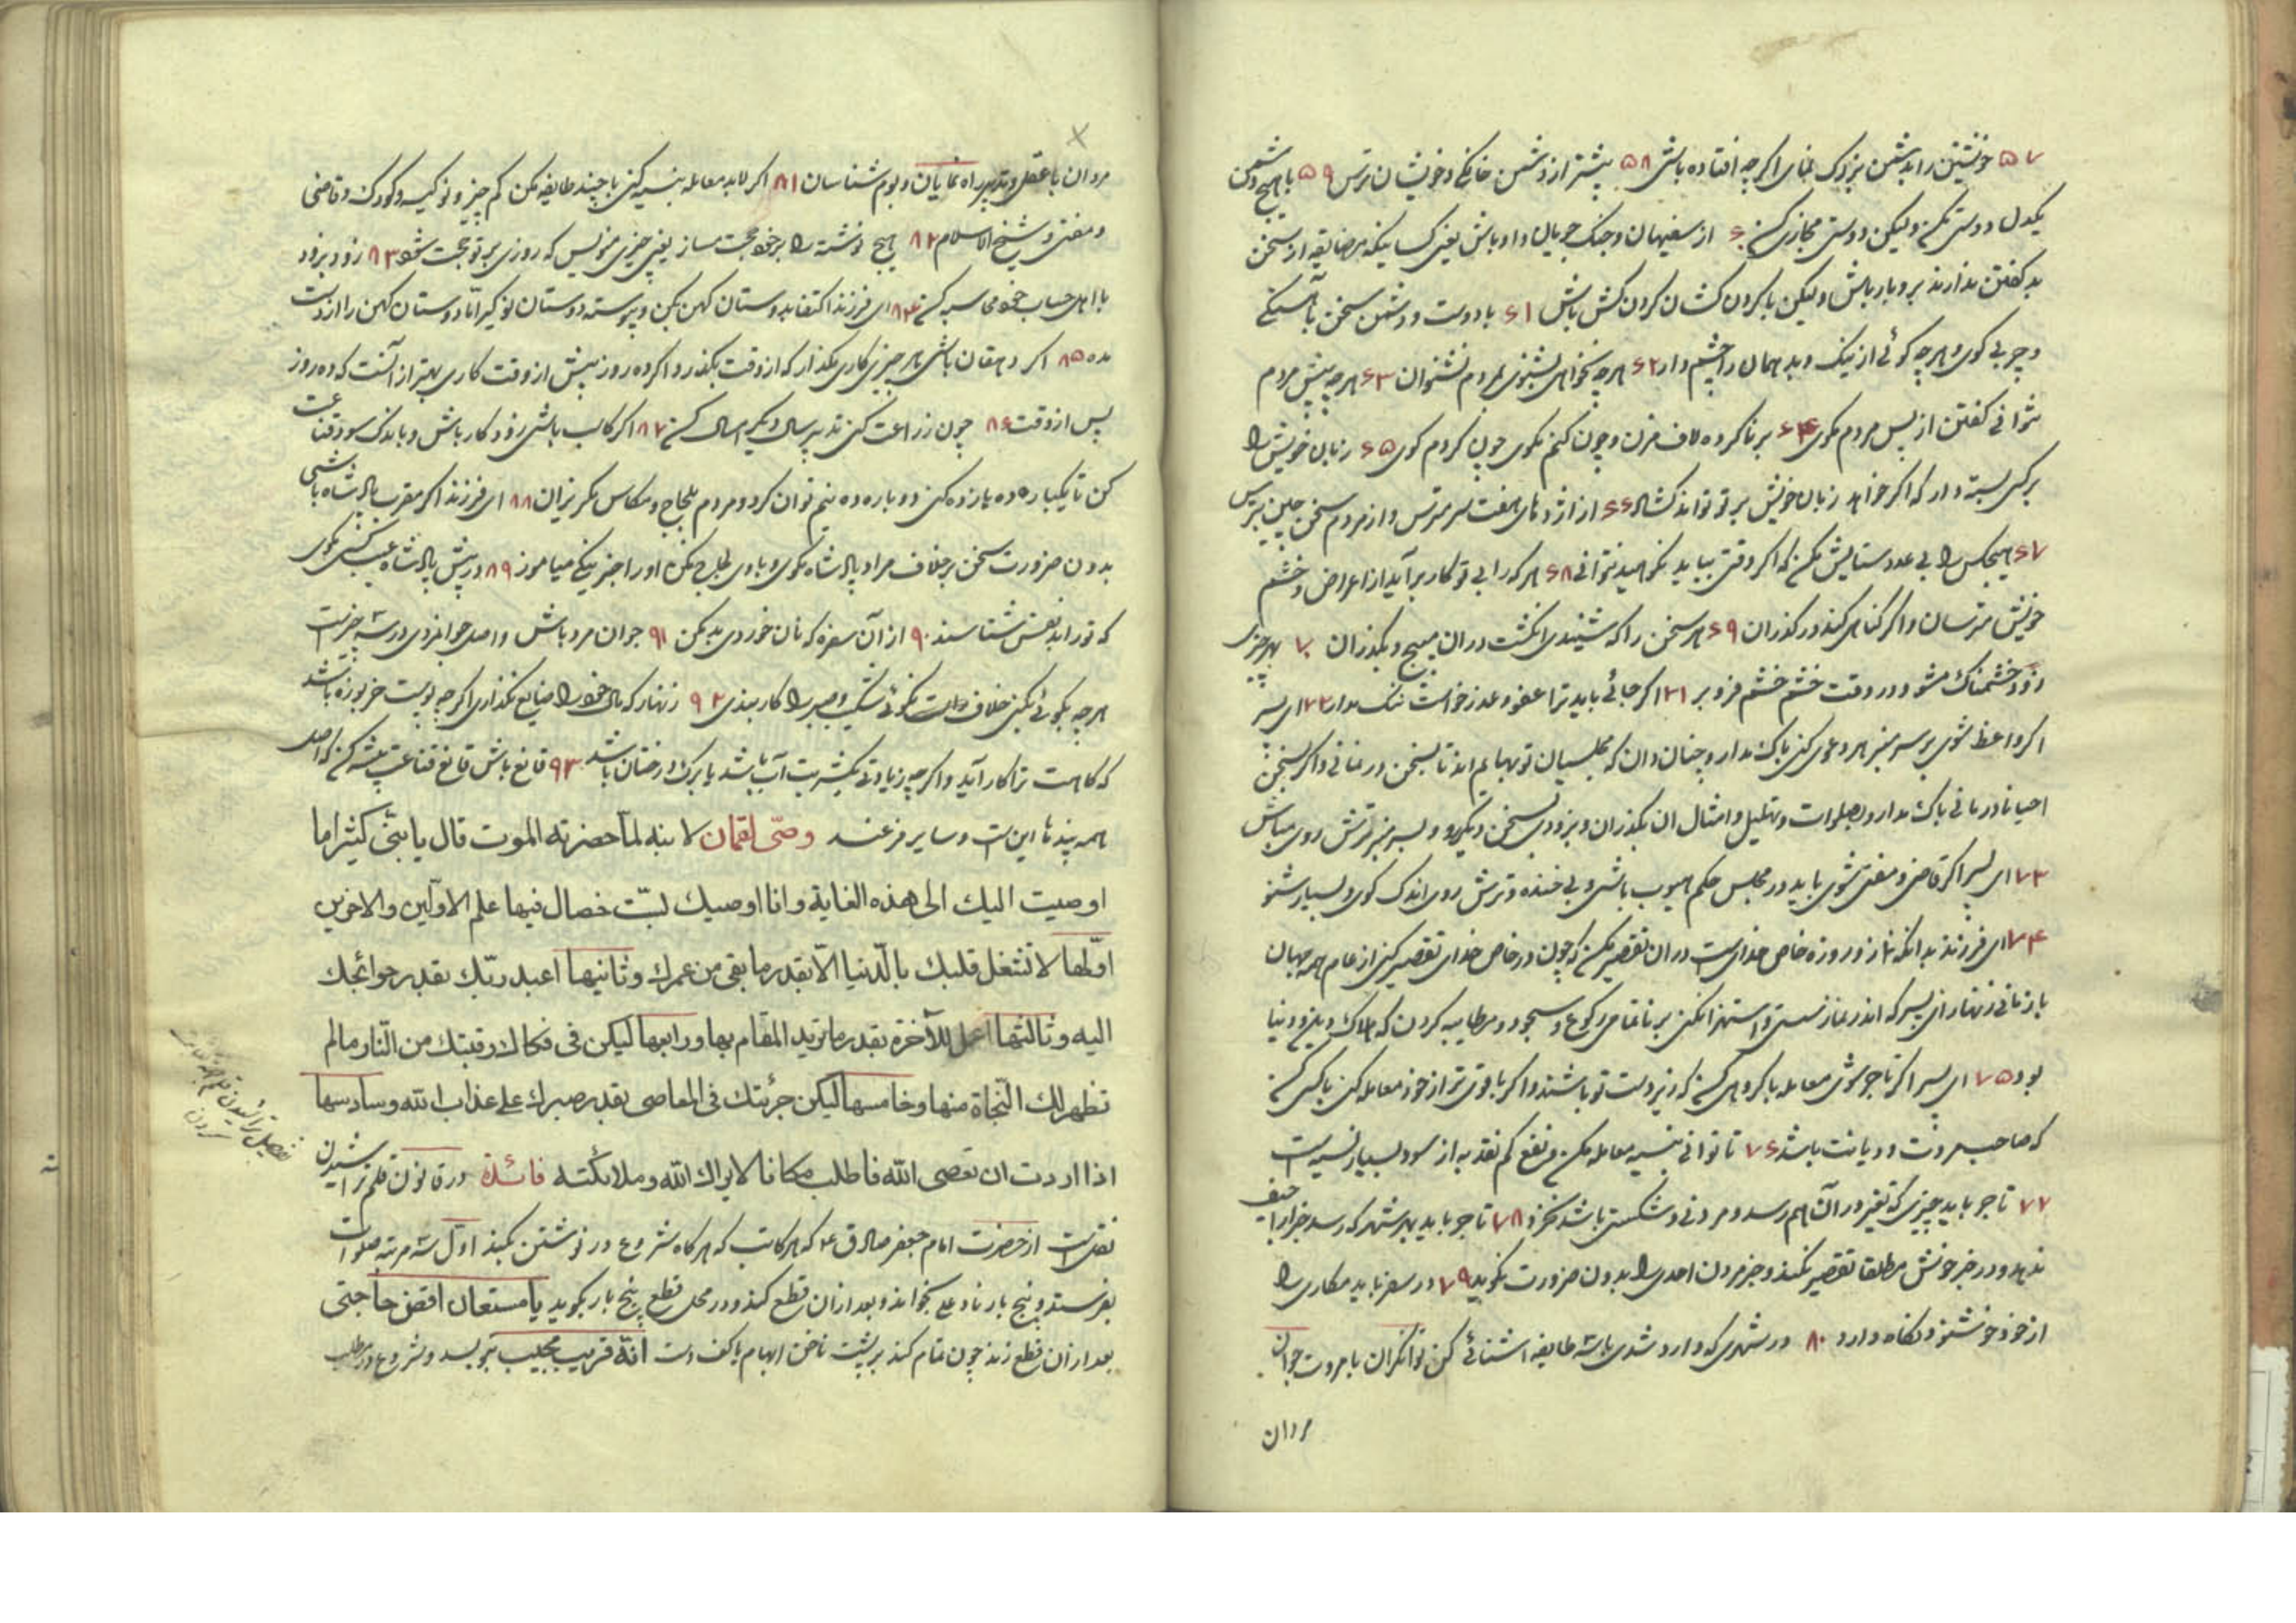 ۵۷ خویشتن را بدشمن بزرک نمای اکرچه افتاده باشی ۵۸ بیشتر از دشمن خانکی و خویشان ترس ۵۹ با هیچ دشمن
یکدل دوستی مکن ولیکن دوستی مجازی کن ۶۰ از سفیهان و جنک جویان و اوباش یعنی کسانیکه مضایقه از سخن
بد کفتن ندارند بردبار باش ولیکن با کردن کشان کردن کش باش ۶۱ با دوست و دشمن سخن بآهستکی
و چربی کوی و هرچه کوئی از نیک و بد همان را چشم دار ۶۲ هرچه نخواهی بشنوی بمردم مشنوان ۶۳ هرچه پیش مردم
نتوانی کفتن از پس مردم مکوی ۶۴ برناکرده لاف مزن و چون کنم مکوی چون کردم کوی ۶۵ زبان خویش را
برکس بسته دار که اکر خواهد زبان خویش بر تو تواند کشاد ۶۶ از اژدهای هفت سر مترس و از مردم سخن چین بترس
۶۷ هیچکس را بی عدد ستایش مکن که اکر وقتی بباید نکوهید نتوانی ۶۸ هر که را بی تو کار برآید از اعراض و خشم
خویش مترسان و اکر کناهی کند درکذران ۶۹ هر سخن را که شنیدی انکشت دران مپیچ و بکذران ۷۰ بهر چیزی
زود خشمناک مشو و در وقت خشم خشم فرو بر ۷۱ اکر جائی باید ترا عفو و عذر خواست ننک مدار ۷۲ ای پسر
اکر واعظ شوی بر سر منبر هر دعوی کنی باک مدار و چنان دان که مجلسیان تو بهایم اند تا بسخن در نمانی و اکر بسخن
احیانا درمانی باک مدار و بصلوات و تهلیل و امثال ان بکذران و بزودی بسخن دیکر رو و بر سر منبر ترش روی مباش
۷۳ ای پسر اکر قاضی و مفتی شوی باید در مجلس حکم مهیوب باشی و بی خنده و ترش روی اندک کوی و بسیار شنو
۷۴ ای فرزند بدانکه نماز و روزه خاص خدای است دران تقصیر مکن که چون در خاص خدای تقصیر کنی از عام همه جهان
بازمانی زنهار ای پسر که اندر نماز سستی و استهزا نکنی بر ناتمامی رکوع و سجود و مطایبه کردن که هلاک دین و دنیا
بود ۷۵ ای پسر اکر تاجر شوی معامله با کروهی کن که زیر دست تو باشند و اکر با قوی تر از خود معامله کنی با کسی کن
که صاحب مروت و دیانت باشد ۷۶ تا توانی بنسیه معامله مکن نفع کم نقد به از سود بسیار نسیه است
۷۷ تاجر باید چیزی که تغیر دران بهم رسد و مردنی و شکستنی باشد نخرد ۷۸ تاجر باید بهر شهر که رسد خبر اراجیف
ندهد و در خبر خوش مطلقا تقصیر نکند و خبر مردن احدی را بدون ضرورت نکوید ۷۹ در سفر باید مکاری را
از خود خوشنود نکاه دارد ۸۰ در شهری که وارد شدی با سه طایفه اشنائی کن توانکران با مروت جوان
مردان
مردان با عقل و تدبیر راه نمایان و بوم شناسان ۸۱ اکر لابد معامله بنسیه کنی با چند طایفه مکن کم چیز و نوکیسه و کودک و قاضی
و مفتی و شیخ الاسلام ۸۲ هیچ نوشته را بر خود حجت مساز یعنی چیزی منویس که روزی بر تو حجت شود ۸۳ زود بزود
با اهل حساب خود محاسبه کن ۸۴ ای فرزند اکتفا بدوستان کهن مکن و پیوسته دوستان نو کیر اما دوستان کهن را از دست
مده ۸۵ اکر دهقان باشی هر چیزی کاری مکذار که از وقت بکذرد و اکر ده روز پیش از وقت کاری بهتر از آنست که ده روز
پس از وقت ۸۶ چون زراعت کنی تدبیر سال دیکر امسال کن ۸۷ اکر کاسب باشی زود کار باش و باندک سود قناعت
کن تا یکبار ده یازده کنی دوباره ده نیم توان کرد و مردم بلجاج و مکاس مکریزان ۸۸ ای فرزند اکر مقرب پادشاه باشی
بدون ضرورت سخن برخلاف مراد پادشاه مکوی و با وی لجاج مکن و او را جز نیکی میاموز ۸۹ در پیش پادشاه عیب کس مکوی
که تو را بد نفس شناسند ۹۰ از آن سفره که نان خوردی بد مکن ۹۱ جوان مرد باش و اصل جوانمردی در سه چیز است
هرچه بکوئی بکنی خلاف راست نکوئی شکیب و صبر را کار بندی ۹۲ زنهار که مال خود را ضایع نکذاری اکرچه پوست خربوزه باشد
که کاهت ترا کار آید و اکرچه زیادتی یکشربت آب باشد یا برک درختان باشد ۹۳ قانع باش قانع قناعت پیشه کن که اصل
همه پندها این است و سایر فرعند وصّی لقمان لابنه لمّا حضرته الموت قال یا بنیّ کثیرا ما
اوصیت الیك الی هذه الغایة وانا اوصیك بستّ خصال فیها علم الاوّلین والاخرین
اوّلها لا تشغل قلبك بالدّنیا الّا بقدر ما بقی من عمرك وثانیها اعبد ربّك بقدر حوائجك
الیه وثالثها اعمل للآخرة بقدر ما ترید المقام بها ورابعها لیکن فی فکاك رقبتك من النّار ما لم
تظهر لك النّجاة منها وخامسها لیکن جرئتك فی المعاصی بقدر صبرك علی عذاب الله وسادسها
اذا اردت ان تعصی الله فاطلب مکانا لا یراك الله وملائکته فائدة در قانون قلم تراشیدن
نقلست از حضرت امام جعفر صادق ع که هر کاتب که هرکاه شروع در نوشتن بکند اول سه مرتبه صلوات
بفرستد و پنج بار ناد علی بخواند و بعد ازان قطع کند و در محل قطع پنج بار بکوید یا مستعان اقض حاجتی
بعد ازان قطع زند چون تمام کند بر پشت ناخن ابهام یا کف دست انّه قریب مجیب بنویسد و شروع در مطلب
تفصیل تراشیدن قلم
کردن